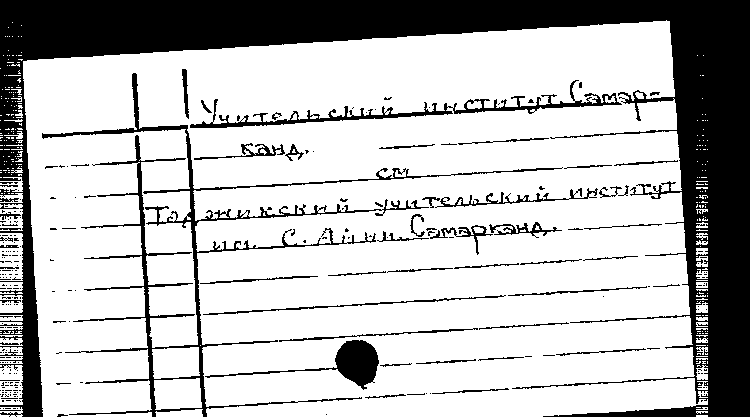 Учительский институт. Самар-
канд.
см
Таджикский учительский институт
им. С. Айни. Самарканд.